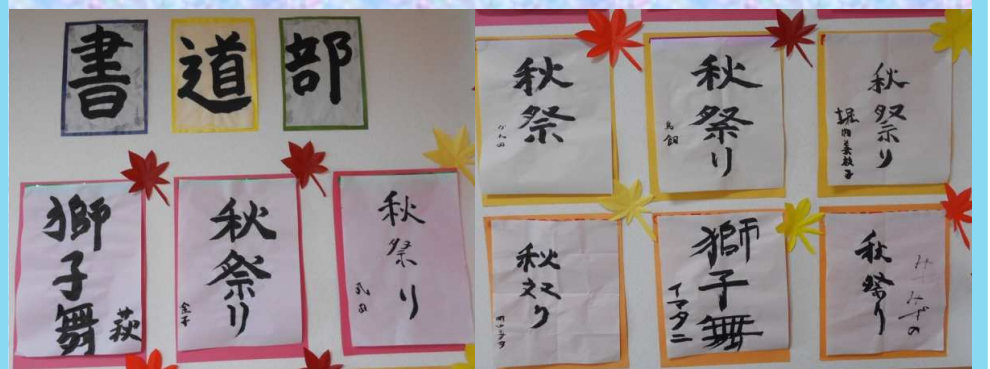 書道部
獅子舞
萩
秋祭り
金子
秋祭り
武田
秋祭
かんの
秋祭り
鳥飼
秋祭り
秋祭り
獅子舞
イマタニ
秋祭り
みずの